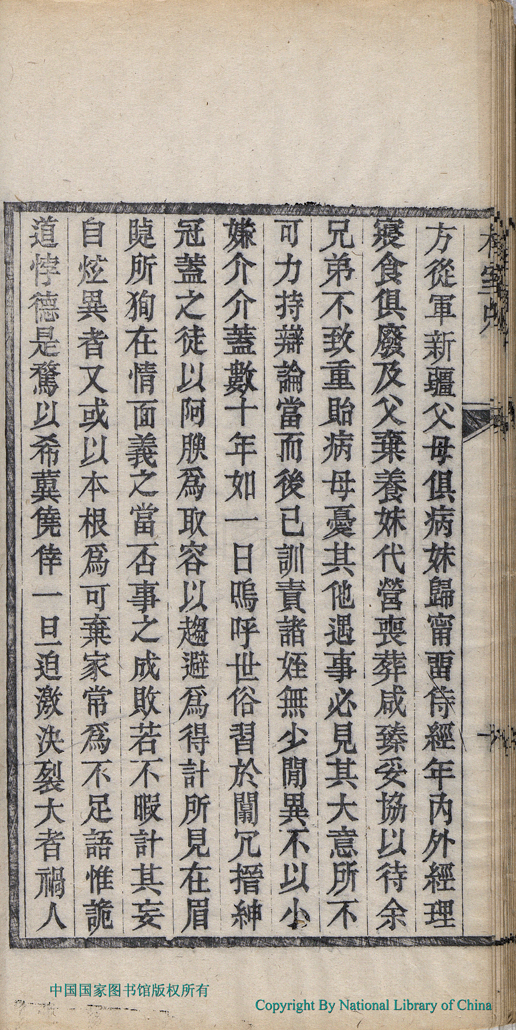 方從軍新疆父母俱病妹歸甯畱侍經年內外經理
寢食俱廢及父棄養妹代營喪葬咸臻妥協以待余
兄弟不致重貽病母憂其他遇事必見其大意所不
可力持辯論當而後已訓責諸姪無少閒異不以小
嫌介介蓋數十年如一日嗚呼世俗習於闒冗搢紳
冠蓋之徒以阿腴爲取容以趨避爲得計所見在眉
睫所狥在情面義之當否事之成敗若不暇計其妄
自炫異者又或以本根爲可棄家常爲不足語惟詭
道悖德是騖以希冀僥倖一旦迫激決裂大者禍人
中国国家图书馆版权所有
Copyright By National Library of China